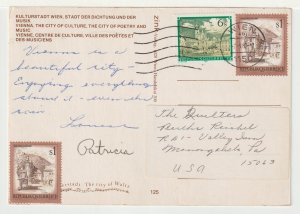 KULTURSTADT WIEN, STADT DER DICHTUNG UND DER MUSIK
VIENNA, THE CITY OF CULTURE, THE CITY OF POETRY AND MUSIC
VIENNE, CENTRE DE CULTURE, VILLE DES POËTES ET DES MUSICIENS
Vienna is a
beautiful city-
Enjoying everything
about it - even the
rain
Love
Patricia
The
Bertha Reichel
R.D.1 - Valley Inn
Monongahela Pa
15063
USA
S 6
REPUBLIK ÖSTERREICH
S 1
REPUBLIK ÖSTERREICH
S 1
The City of Waltz
125